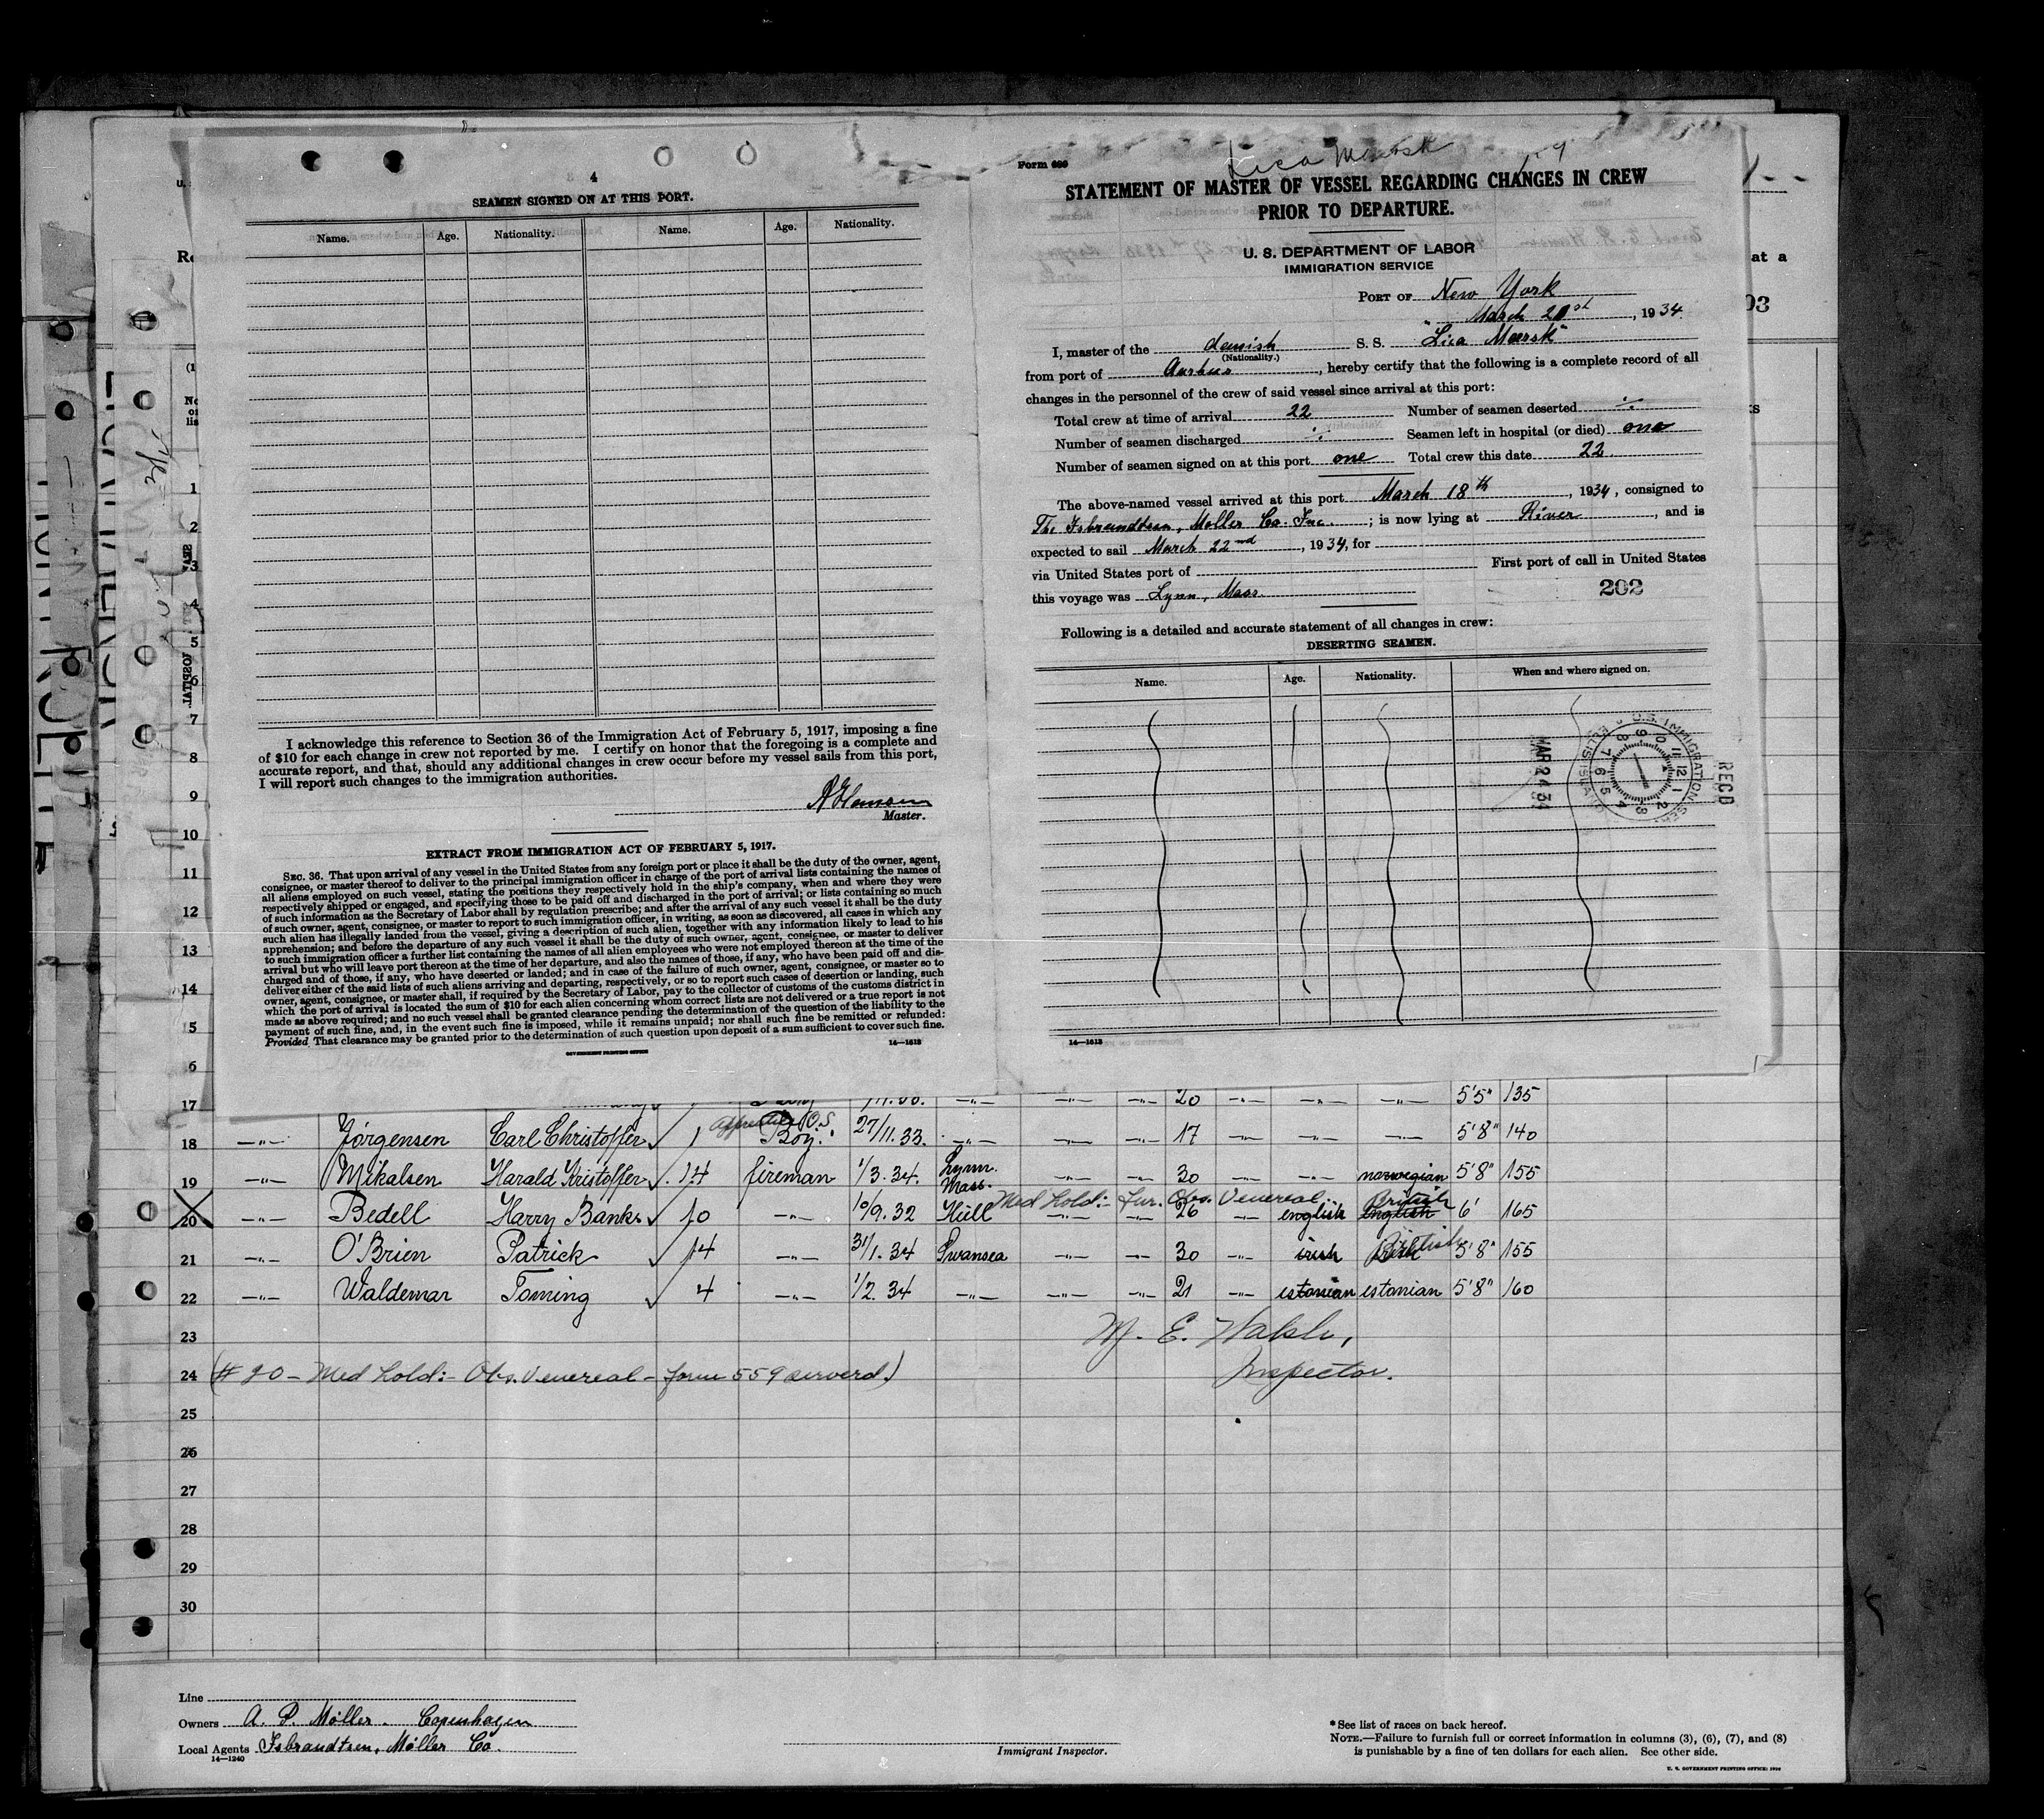 4
SEAMEN SIGNED ON AT THIS PORT.
Name. Age. Nationality. Name. Age. Nationality.
I acknowledge this reference to Section 36 of the Immigration Act of February 5, 1917, imposing a fine
of $10 for each change in crew not reported by me. I certify on honor that the foregoing is a complete and
accurate report, and that, should any additional changes in crew occur before my vessel sails from this port,
I will report such changes to the immigration authorities.
Master.
EXTRACT FROM IMMIGRATION ACT OF FEBRUARY 5, 1917.
SEC. 36. That upon arrival of any vessel in the United States from any foreign port or place it shall be the duty of the owner, agent,
consignee, or master thereof to deliver to the principal immigration officer in charge of the port of arrival lists containing the names of
all aliens employed on such vessel, stating the positions they respectively hold in the ship's company, when and where they were
respectively shipped or engaged, and specifying those to be paid off and discharged in the port of arrival; or lists containing so much
of such information as the Secretary of Labor shall by regulation prescribe; and after the arrival of any such vessel it shall be the duty
of such owner, agent, consignee, or master to report to such immigration officer, in writing, as soon as discovered, all cases in which any
such alien has illegally landed from the vessel, giving a description of such alien, together with any information likely to lead to his
apprehension; and before the departure of any such vessel it shall be the duty of such owner, agent, consignee, or master to deliver
to such immigration officer a further list containing the names of all alien employees who were not employed thereon at the time of the
arrival but who will leave port thereon at the time of her departure, and also the names of those, if any, who have been paid off and dis-
charged and of those, if any, who have deserted or landed; and in case of the failure of such owner, agent, consignee, or master so to
deliver either of the said lists of such aliens arriving and departing, respectively, or so to report such cases of desertion or landing, such
owner, agent, consignee, or master shall, if required by the Secretary of Labor, pay to the collector of customs of the customs district in
which the port of arrival is located the sum of $10 for each alien concerning whom correct lists are not delivered or a true report is not
made as above required; and no such vessel shall be granted clearance pending the determination of the question of the liability to the
payment of such fine, and, in the event such fine is imposed, while it remains unpaid; nor shall such fine be remitted or refunded:
Provided That clearance may be granted prior to the determination of such question upon deposit of a sum sufficient to cover such fine.
GOVERNMENT PRINTING OFFICE 14—1613
Lica Maersk
Form 689
STATEMENT OF MASTER OF VESSEL REGARDING CHANGES IN CREW
PRIOR TO DEPARTURE.
U. S. DEPARTMENT OF LABOR
IMMIGRATION SERVICE
PORT OF New York
March 21st, 1934.
I, master of the danish S. S. "Lica Maersk"
(Nationality.)
from port of Aarhus, hereby certify that the following is a complete record of all
changes in the personnel of the crew of said vessel since arrival at this port:
Total crew at time of arrival 22 Number of seamen deserted ÷
Number of seamen discharged ÷ Seamen left in hospital (or died) one
Number of seamen signed on at this port one Total crew this date 22.
The above-named vessel arrived at this port March 18th, 1934, consigned to
The Isbrandtsen, Moller Co. Inc.; is now lying at River, and is
expected to sail March 22nd, 1934, for
via United States port of First port of call in United States
this voyage was Lynn, Mass. 202
Following is a detailed and accurate statement of all changes in crew:
DESERTING SEAMEN.
Name. Age. Nationality. When and where signed on.
U.S. IMMIGRATION SER. ELLIS ISLAND
REC'D
14—1613
17 —"— —"— 20 —"— —"— —"— 5'5" 135
18 —"— Jørgensen Carl Christoffer 1 apprentice O.S. Boy. 27/11.33. —"— —"— —"— 17 —"— —"— —"— 5'8" 140
19 —"— Mikalsen Harald Kristoffer 14 fireman 1/3.34. Lynn. Mass. —"— —"— 30 —"— —"— norwegian 5'8" 155
Med Hold:- Fur. Obs. Venereal
20 —"— Bedell Harry Banks 10 —"— 10/9.32 Hull —"— —"— 26 —"— english english British 6' 165
21 —"— O'Brien Patrick 14 —"— 31/1.34 Swansea —"— —"— 30 —"— irish Irish British 5'8" 155
22 —"— Waldemar Toming 4 —"— 1/2.34 —"— —"— —"— 21 —"— estonian estonian 5'8" 160
23 M. E. Walsh,
24 (#20 - Med Hold:- Obs. Venereal - form 559 serverd.) Inspector.
25
26
27
28
29
30
Line
Owners A. P. Møller. Copenhagen
Local Agents Isbrandtsen, Møller Co.
14—1240
Immigrant Inspector.
*See list of races on back hereof.
NOTE.—Failure to furnish full or correct information in columns (3), (6), (7), and (8)
is punishable by a fine of ten dollars for each alien. See other side.
U. S. GOVERNMENT PRINTING OFFICE: 1930